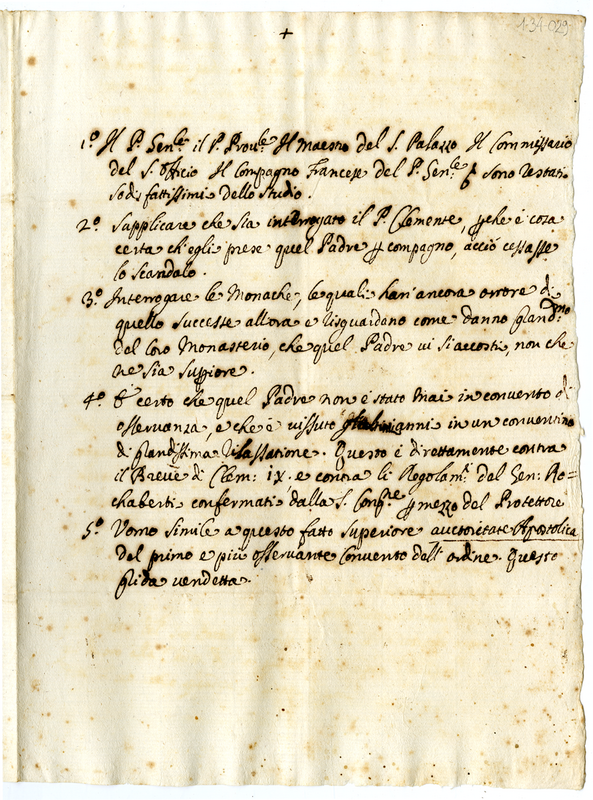 1·34·029
+
1º Il P. Gen.le il P. Prov.le Il Maestro del S. Palazzo Il Commissario
del S. Officio Il Compagno Francese del P. Gen.le sono restati
sodisfattissimi dello studio.
2º Supplicare che sia interrogato il P. Clemente, pche è cosa
certa ch'egli prese quel Padre p compagno, acciò cessasse
lo scandalo.
3º Interrogare le Monache, le quali han' ancora orrore di
quello successe allora e risguardano come danno grand.mo
del loro Monasterio, che quel Padre vi si accosti, non che
ne sia Supiore.
4º È certo che quel Padre non è stato mai in convento di
osservanza, e che è vissuto anni in un conventino
di grandissima rilassatione. Questo è direttamente contra
il Breve di Clem: IX. e contra li Regolam.i del Gen: Ro=
chaberti confermati dalla S. Cong.ne p mezzo del Protettore
5º Uomo simile a questo fatto superiore auctoritate Apostolica
del primo e più osservante convento dell' ordine. Questo
grida vendetta.